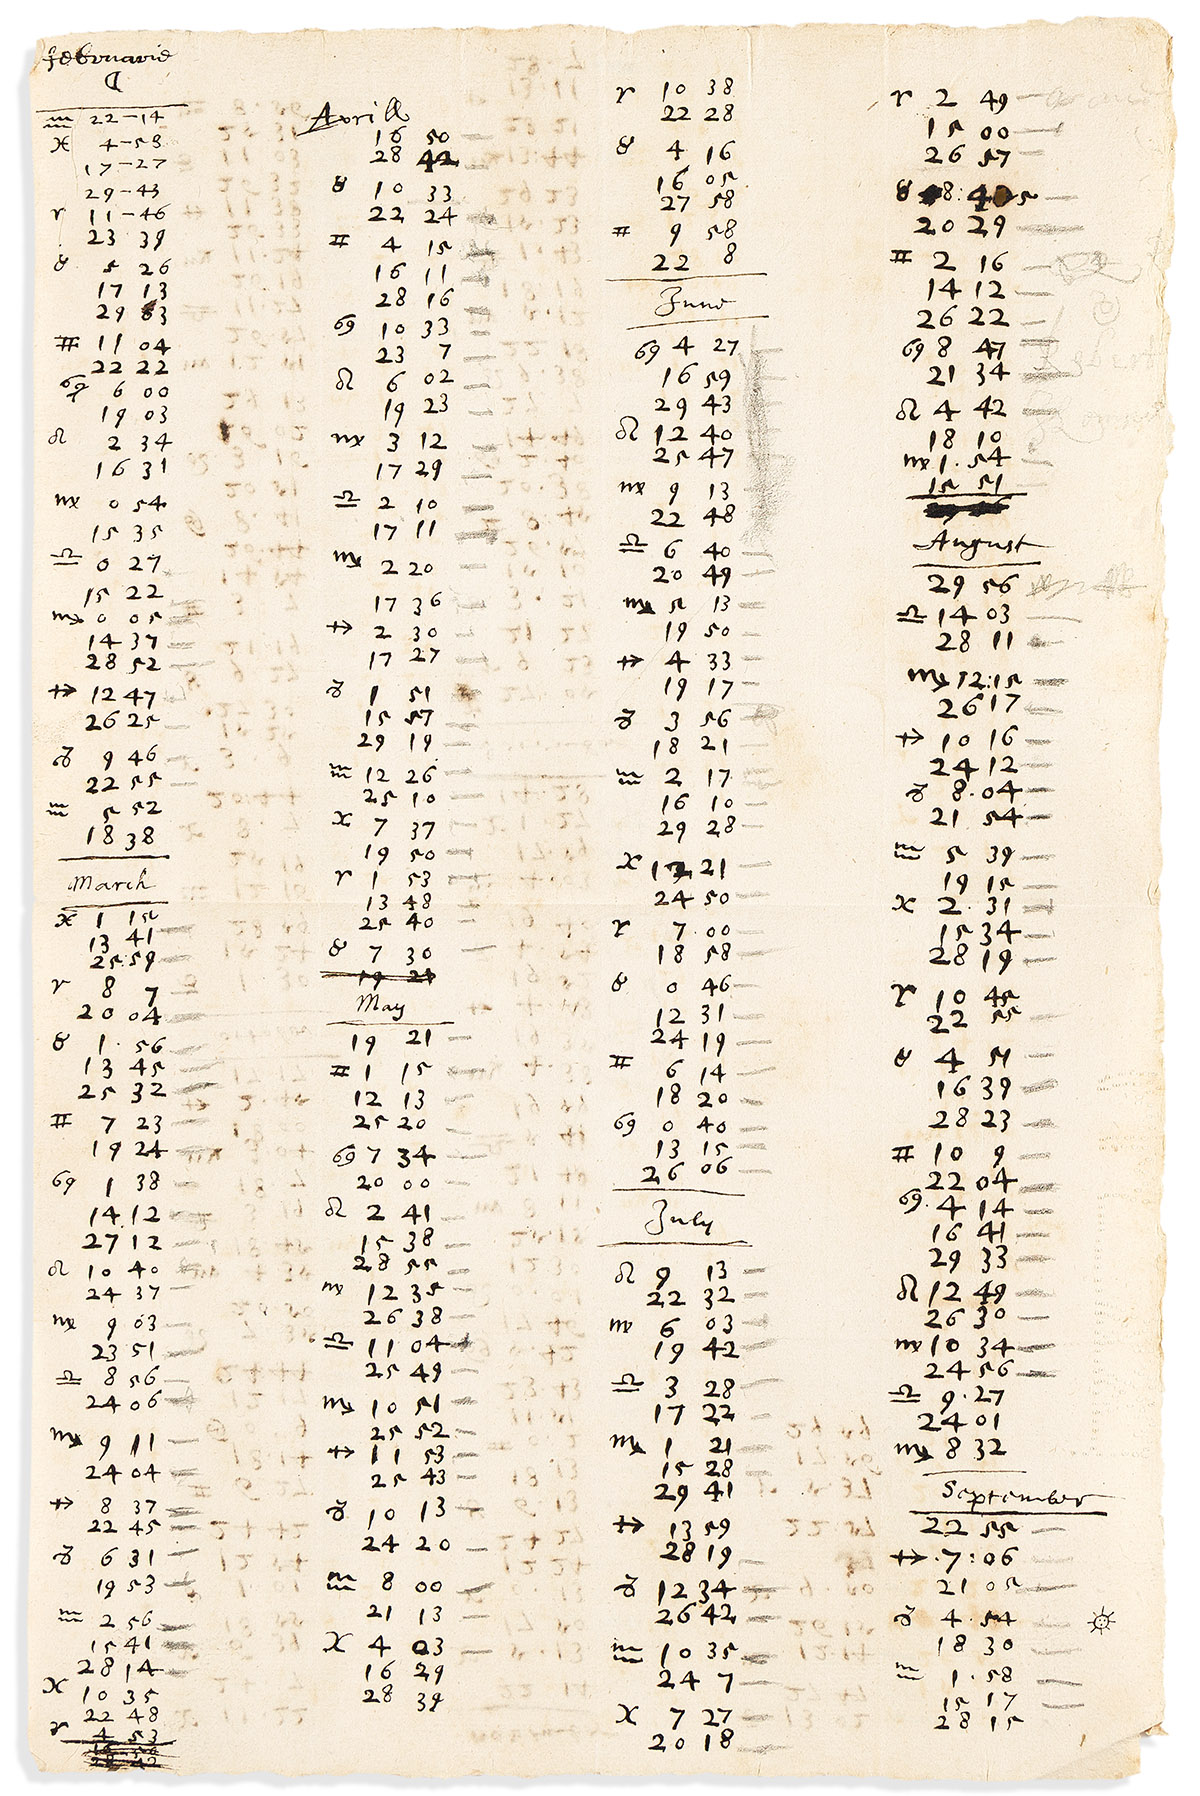 februarie
☾
♒ 22-14
♓ 4-58
17-27
29-43
♈ 11-46
23 39
♉ 5 26
17 13
29 03
♊ 11 04
22 22
♋ 6 00
19 03
♌ 2 34
16 31
♍ 0 54
15 35
♎ 0 27
15 22
♏ 0 05
14 37
28 52
♐ 12 47
26 25
♑ 9 46
22 55
♒ 5 52
18 38
March
♓ 1 15
13 41
25:59
♈ 8 7
20 04
♉ 1. 56
13 45
25 32
♊ 7 23
19 24
♋ 1 38
14 12
27 12
♌ 10 40
24 37
♍ 9 03
23 51
♎ 8 56
24 06
♏ 9 11
24 04
♐ 8 37
22 45
♑ 6 31
19 53
♒ 2 56
15 41
28 14
♓ 10 35
22 48
♈ 4 53
Aprill
16 50
28 42
♉ 10 33
22 24
♊ 4 15
16 11
28 16
♋ 10 33
23 7
♌ 6 02
19 23
♍ 3 12
17 29
♎ 2 10
17 11
♏ 2 20
17 36
♐ 2 30
17 27
♑ 1 51
15 57
29 19
♒ 12 26
25 10
♓ 7 37
19 50
♈ 1 53
13 48
25 40
♉ 7 30
19 21
May
19 21
♊ 1 15
12 13
25 20
♋ 7 34
20 00
♌ 2 41
15 38
28 55
♍ 12 35
26 38
♎ 11 04
25 49
♏ 10 51
25 52
♐ 11 53
25 43
♑ 10 13
24 20
♒ 8 00
21 13
♓ 4 03
16 29
28 39
♈ 10 38
22 28
♉ 4 16
16 05
27 58
♊ 9 58
22 8
June
♋ 4 27
16 59
29 43
♌ 12 40
25 47
♍ 9 13
22 48
♎ 6 40
20 49
♏ 5 13
19 50
♐ 4 33
19 17
♑ 3 56
18 21
♒ 2 17
16 10
29 28
♓ 12 21
24 50
♈ 7.00
18 58
♉ 0 46
12 31
24 19
♊ 6 14
18 20
♋ 0 40
13 15
26 06
July
♌ 9 13
22 32
♍ 6 03
19 42
♎ 3 28
17 22
♏ 1 21
15 28
29 41
♐ 13 59
28 19
♑ 12 34
26 42
♒ 10 35
24 7
♓ 7 27
20 18
♈ 2 49
15 00
26 57
♉ 8:45
20 29
♊ 2 16
14 12
26 22
♋ 8 47
21 34
♌ 4 42
18 10
♍ 1.54
15 51
August
29 56
♎ 14 03
28 11
♏ 12:15
26 17
♐ 10 16
24 12
♑ 8.04
21 54
♒ 5 39
19 15
♓ 2.31
15 34
28 19
♈ 10 45
22 55
♉ 4 51
16 39
28 23
♊ 10 9
22 04
♋ 4 14
16 41
29 33
♌ 12 49
26 30
♍ 10 34
24 56
♎ 9.27
24 01
♏ 8 32
September
22 55
♐ 7:06
21 05
♑ 4.54
18 30
♒ 1.58
15 17
28 15